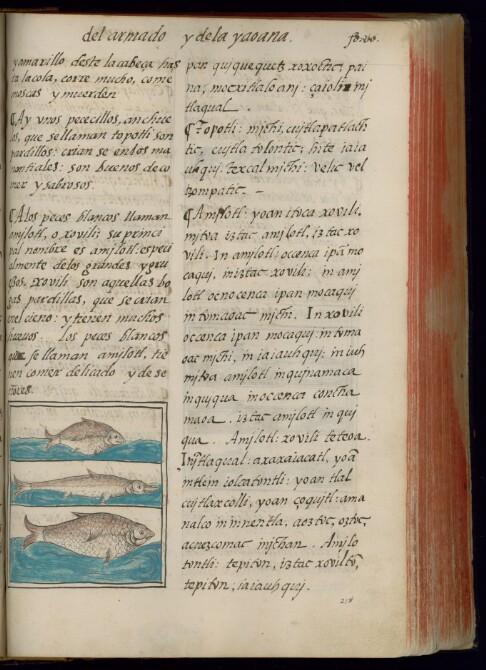 del armado y dela yaoana.
fo. 
y amarillo deste la cabeça has
ta la cola, corre mucho, come
moscas y muerden
¶Ay vnos pececillos, anchue
los, que se llaman topotli son
pardillos: crian se en los ma
nantiales: son buenos de co
mer y sabrosos.
¶A los peces blancos llaman
amjlotl, o xovili: su princi
pal nombre es amjlotl: especi
almente delos grandes y gru
esos. xovili son aquellas bo
gas pardillas, que se crian
en el cieno: y tienen muchos
huevos. los peces blancos
que se llaman amjlotl, tie
nen comer delicado y de se
ñores.
pan qujquequetz xoxoctic, pai
na, motzitialoanj: çaiolin mj
tlaqual.
¶Topotli: mjchi, cujtlapatlach
tic, cujtla tolontic, hite iaia
uhquj. texcal mjchi: velic vel
tzompatic. —
¶Amjlotl: yoan itoca xovili,
mjtoa iztac amjlotl, iztac xo
vili. In amjlotl: ocenca ipã mo
caquj, in iztac xovili: in amj
lotl oc nocenca ipan mocaquj
in tomaoac mjchi. In xovili
occenca ipan mocaquj: in toma
oac mjchi, in iaiauhquj: in iuh
mjtoa amjlotl in qujnamaca
in qujqua in occenca
maoa. iztac amjlotl in quj
qua. Amjlotl: xovili teteoa.
Injtlaqual: axaxaiacatl, yoã
in tlein iolcatontli: yoan tlal
cujtlaxcolli, yoan çoqujtl: ama
nalco in nnentla, aoztoc, oztoc,
acuezcomac injchan. Amjlo
tontli: tepiton, iztac xoviltõ,
tepiton, iaiauhquj.